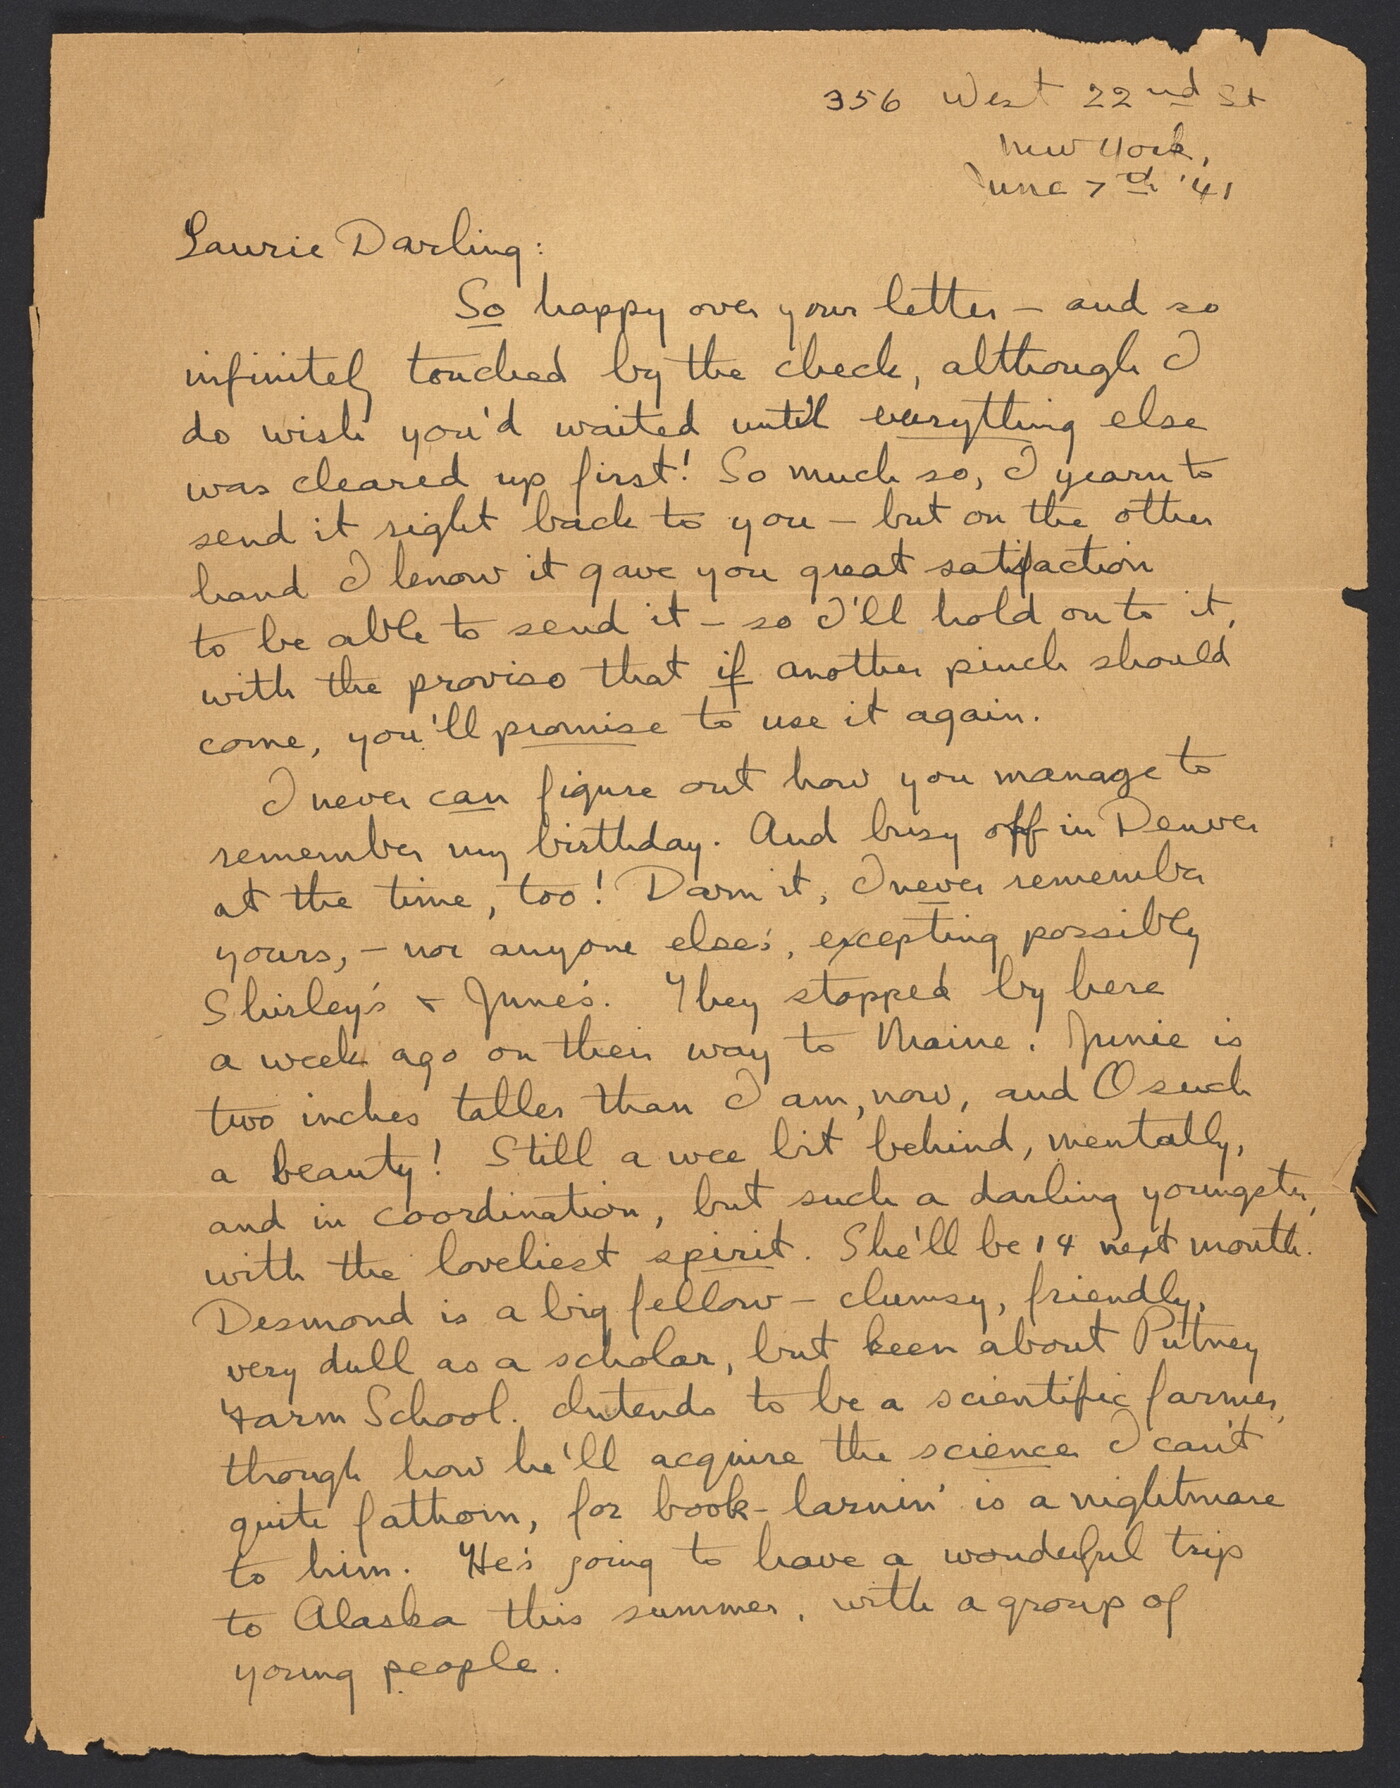 356 West 22nd St
New York,
June 7th '41
Laurie Darling:
So happy over your letter – and so
infinitely touched by the check, although I
do wish you'd waited until everything else
was cleared up first! So much so, I yearn to
send it right back to you – but on the other
hand I know it gave you great satisfaction
to be able to send it – so I'll hold on to it,
with the proviso that if another pinch should
come, you'll promise to use it again.
I never can figure out how you manage to
remember my birthday. And busy off in Denver
at the time, too! Darn it, I never remember
yours, – nor anyone else's, excepting possibly
Shirley's & June's. They stopped by here
a week ago on their way to Maine. Junie is
two inches taller than I am, now, and O such
a beauty! Still a wee bit behind, mentally,
and in coordination, but such a darling youngster,
with the loveliest spirit. She'll be 14 next month.
Desmond is a big fellow – clumsy, friendly,
very dull as a scholar, but keen about Putney
Farm School. Intends to be a scientific farmer,
though how he'll acquire the science I can't
quite fathom, for book-larnin' is a nightmare
to him. He's going to have a wonderful trip
to Alaska this summer, with a group of
young people.